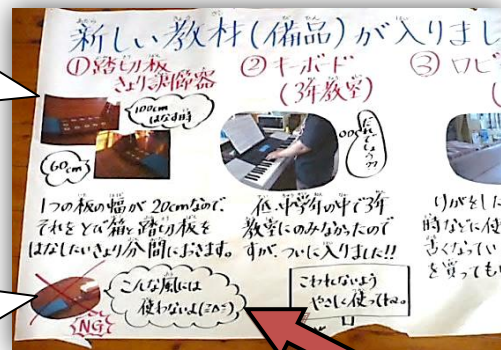 新しい教材(備品)が入りまし
①踏切板
きょり調節器
100cm
はなす時
60cm
1つの板の幅が20cmなので、
それをとび箱と踏切板を
はなしたいきょり分、間におきます。
NG
こんな風には
使わないよ(ﾐ△ﾐ)
②キーボード
(3年教室)
だれでしょう??
低・中学年の中で3年
教室にのみなかったので
すが、ついに入りました!!
こわれないよう
やさしく使ってね。
③ロビ
りがをした
時などに使
苦くなってい
を買っても